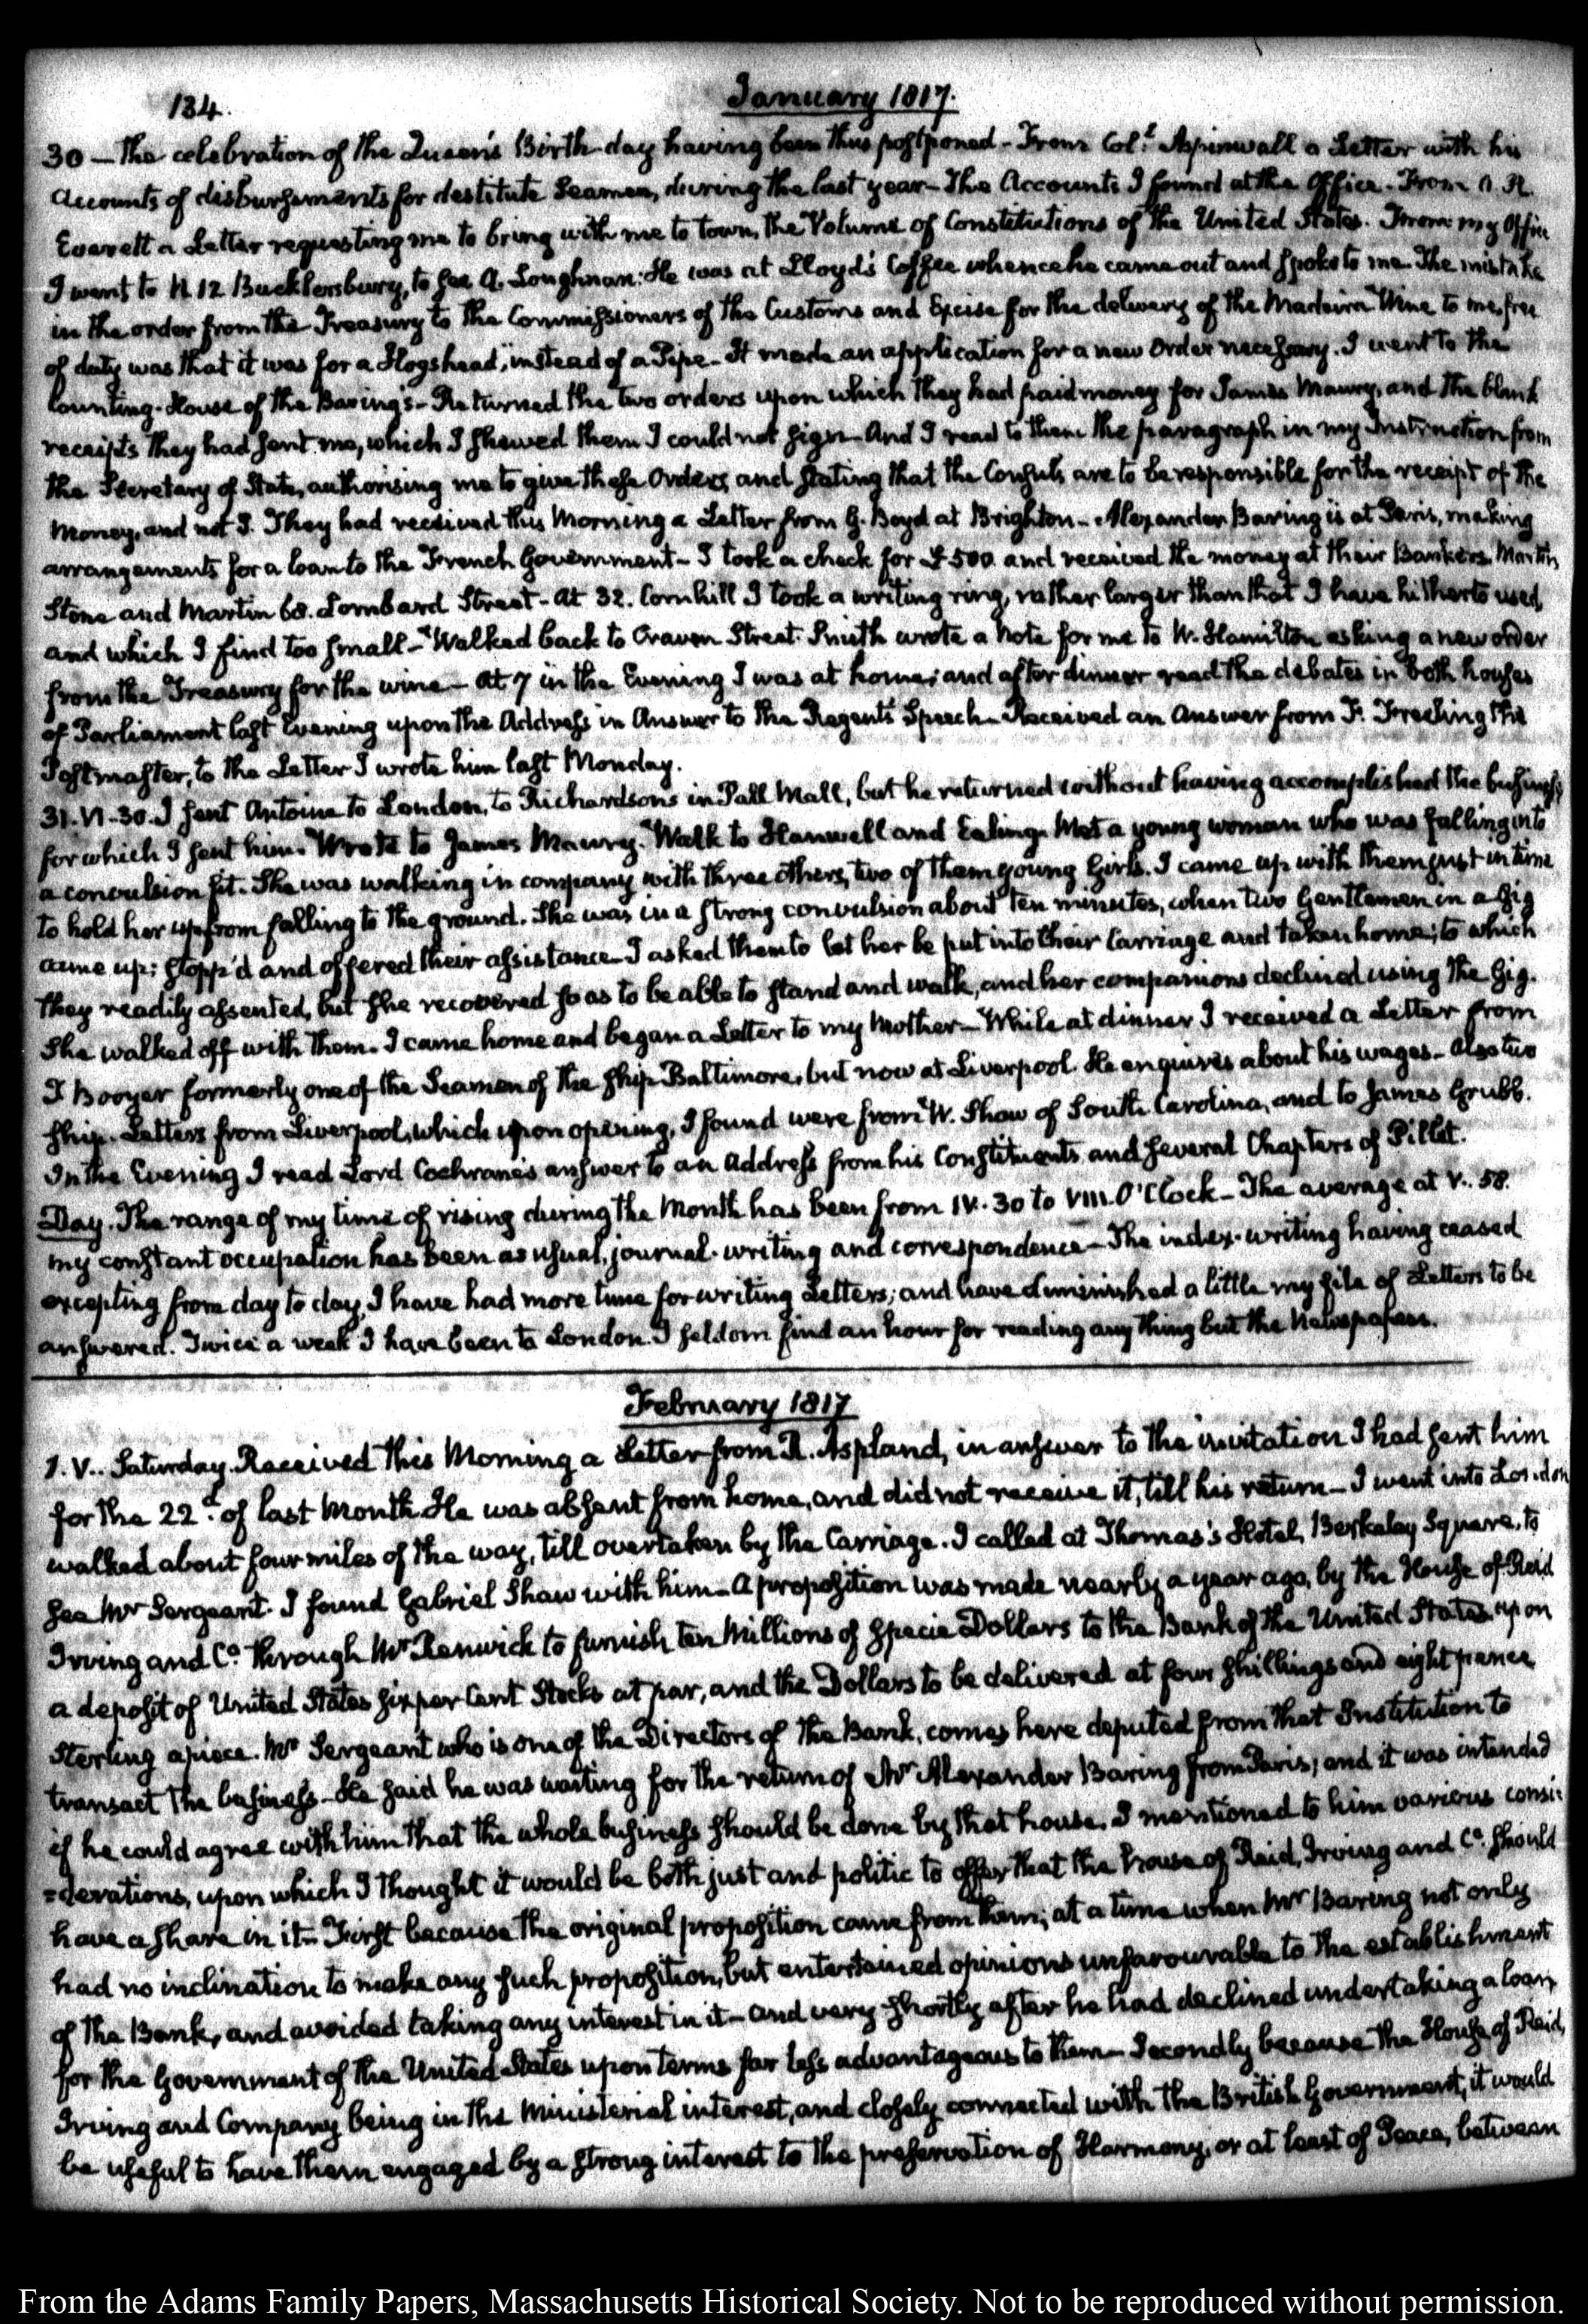 134.
January 1817.
30 — The celebration of the Queen's Birth-day having been thus postponed - From Col.l Aspinwall a Letter with his
Accounts of disbursements for destitute Seamen, during the last year - The Accounts I found at the Office. From A. H.
Everett a Letter requesting me to bring with me to town, the Volume of Constitutions of the United States. From my Office
I went to N. 12 Bucklersbury, to see A. Loughnan: He was at Lloyd's Coffee whence he came out and spoke to me. The mistake
in the order from the Treasury to the Commissioners of the Customs and Excise for the delivery of the Madeira Wine to me, free
of duty was that it was for a Hogshead, instead of a Pipe - It made an application for a new Order necessary. I went to the
Counting-House of the Barings - Returned the two orders upon which they had paid money for James Maury, and the blank
receipts they had sent me, which I shewed them I could not sign - And I read to them the paragraph in my Instruction from
the Secretary of State, authorising me to give these Orders, and stating that the Consuls are to be responsible for the receipt of the
Money, and not I. They had received this Morning a Letter from G. Boyd at Brighton - Alexander Baring is at Paris, making
arrangements for a loan to the French Government - I took a check for £500 and received the money at their Bankers Martin
Stone and Martin 68. Lombard Street - At 32. Cornhill I took a writing ring, rather larger than that I have hitherto used,
and which I find too small - Walked back to Craven Street. Smith wrote a Note for me to W. Hamilton asking a new order
from the Treasury for the wine - At 7 in the Evening I was at home; and after dinner read the debates in both houses
of Parliament last Evening upon the Address in Answer to the Regent's Speech - Received an Answer from F. Freeling the
Postmaster, to the Letter I wrote him last Monday.
31. VI.30. I sent Antoine to London, to Richardsons in Pall Mall, but he returned without having accomplished the business
for which I sent him. Wrote to James Maury. Walk to Hanwell and Ealing. Met a young woman who was falling into
a convulsion fit. She was walking in company with three others, two of them young Girls. I came up with them just in time
to hold her up from falling to the ground. She was in a strong convulsion about ten minutes, when two Gentlemen in a Gig
came up; stopp'd and offered their assistance - I asked them to let her be put into their Carriage and taken home; to which
they readily assented, but she recovered so as to be able to stand and walk, and her companions declined using the Gig.
She walked off with them. I came home and began a Letter to my Mother - While at dinner I received a Letter from
J Booyer formerly one of the Seamen of the ship Baltimore, but now at Liverpool. He enquires about his wages - Also two
ship-Letters from Liverpool, which upon opening, I found were from W. Shaw of South Carolina, and to James Grubb.
In the Evening I read Lord Cochrane's answer to an Address from his Constituents and several Chapters of Pillet.
Day. The range of my time of rising during the Month has been from IV.30 to VIII. O'Clock - The average at V..58.
my constant occupation has been as usual, journal-writing and correspondence - The index-writing having ceased
excepting from day to day, I have had more time for writing Letters; and have diminished a little my file of Letters to be
answered. Twice a week I have been to London. I seldom find an hour for reading any thing but the Newspapers.
February 1817
1. V.. Saturday. Received this Morning a Letter from R. Aspland, in answer to the invitation I had sent him
for the 22.d of last Month. He was absent from home, and did not receive it, till his return - I went into London
walked about four miles of the way, till overtaken by the Carriage. I called at Thomas's Hotel, Berkeley Square, to
see Mr Sergeant. I found Gabriel Shaw with him - A proposition was made nearly a year ago, by the House of Reid
Irving and Co. through Mr Renwick to furnish ten Millions of Specie Dollars to the Bank of the United States, upon
a deposit of United States six per Cent Stocks at par, and the Dollars to be delivered at four shillings and eight pence
Sterling apiece. Mr Sergeant who is one of the Directors of the Bank, comes here deputed from that Institution to
transact the business - He said he was waiting for the return of Mr Alexander Baring from Paris; and it was intended
if he could agree with him that the whole business should be done by that house. I mentioned to him various consi=
=derations, upon which I thought it would be both just and politic to offer that the house of Reid, Irving and Co. should
have a share in it - First because the original proposition came from them; at a time when Mr Baring not only
had no inclination to make any such proposition, but entertained opinions unfavourable to the establishment
of the Bank, and avoided taking any interest in it - and very shortly after he had declined undertaking a loan
for the Government of the United States upon terms far less advantageous to them - Secondly because the House of Reid,
Irving and Company being in the Ministerial interest, and closely connected with the British Government, it would
be useful to have them engaged by a strong interest to the preservation of Harmony, or at least of Peace, between
From the Adams Family Papers, Massachusetts Historical Society. Not to be reproduced without permission.